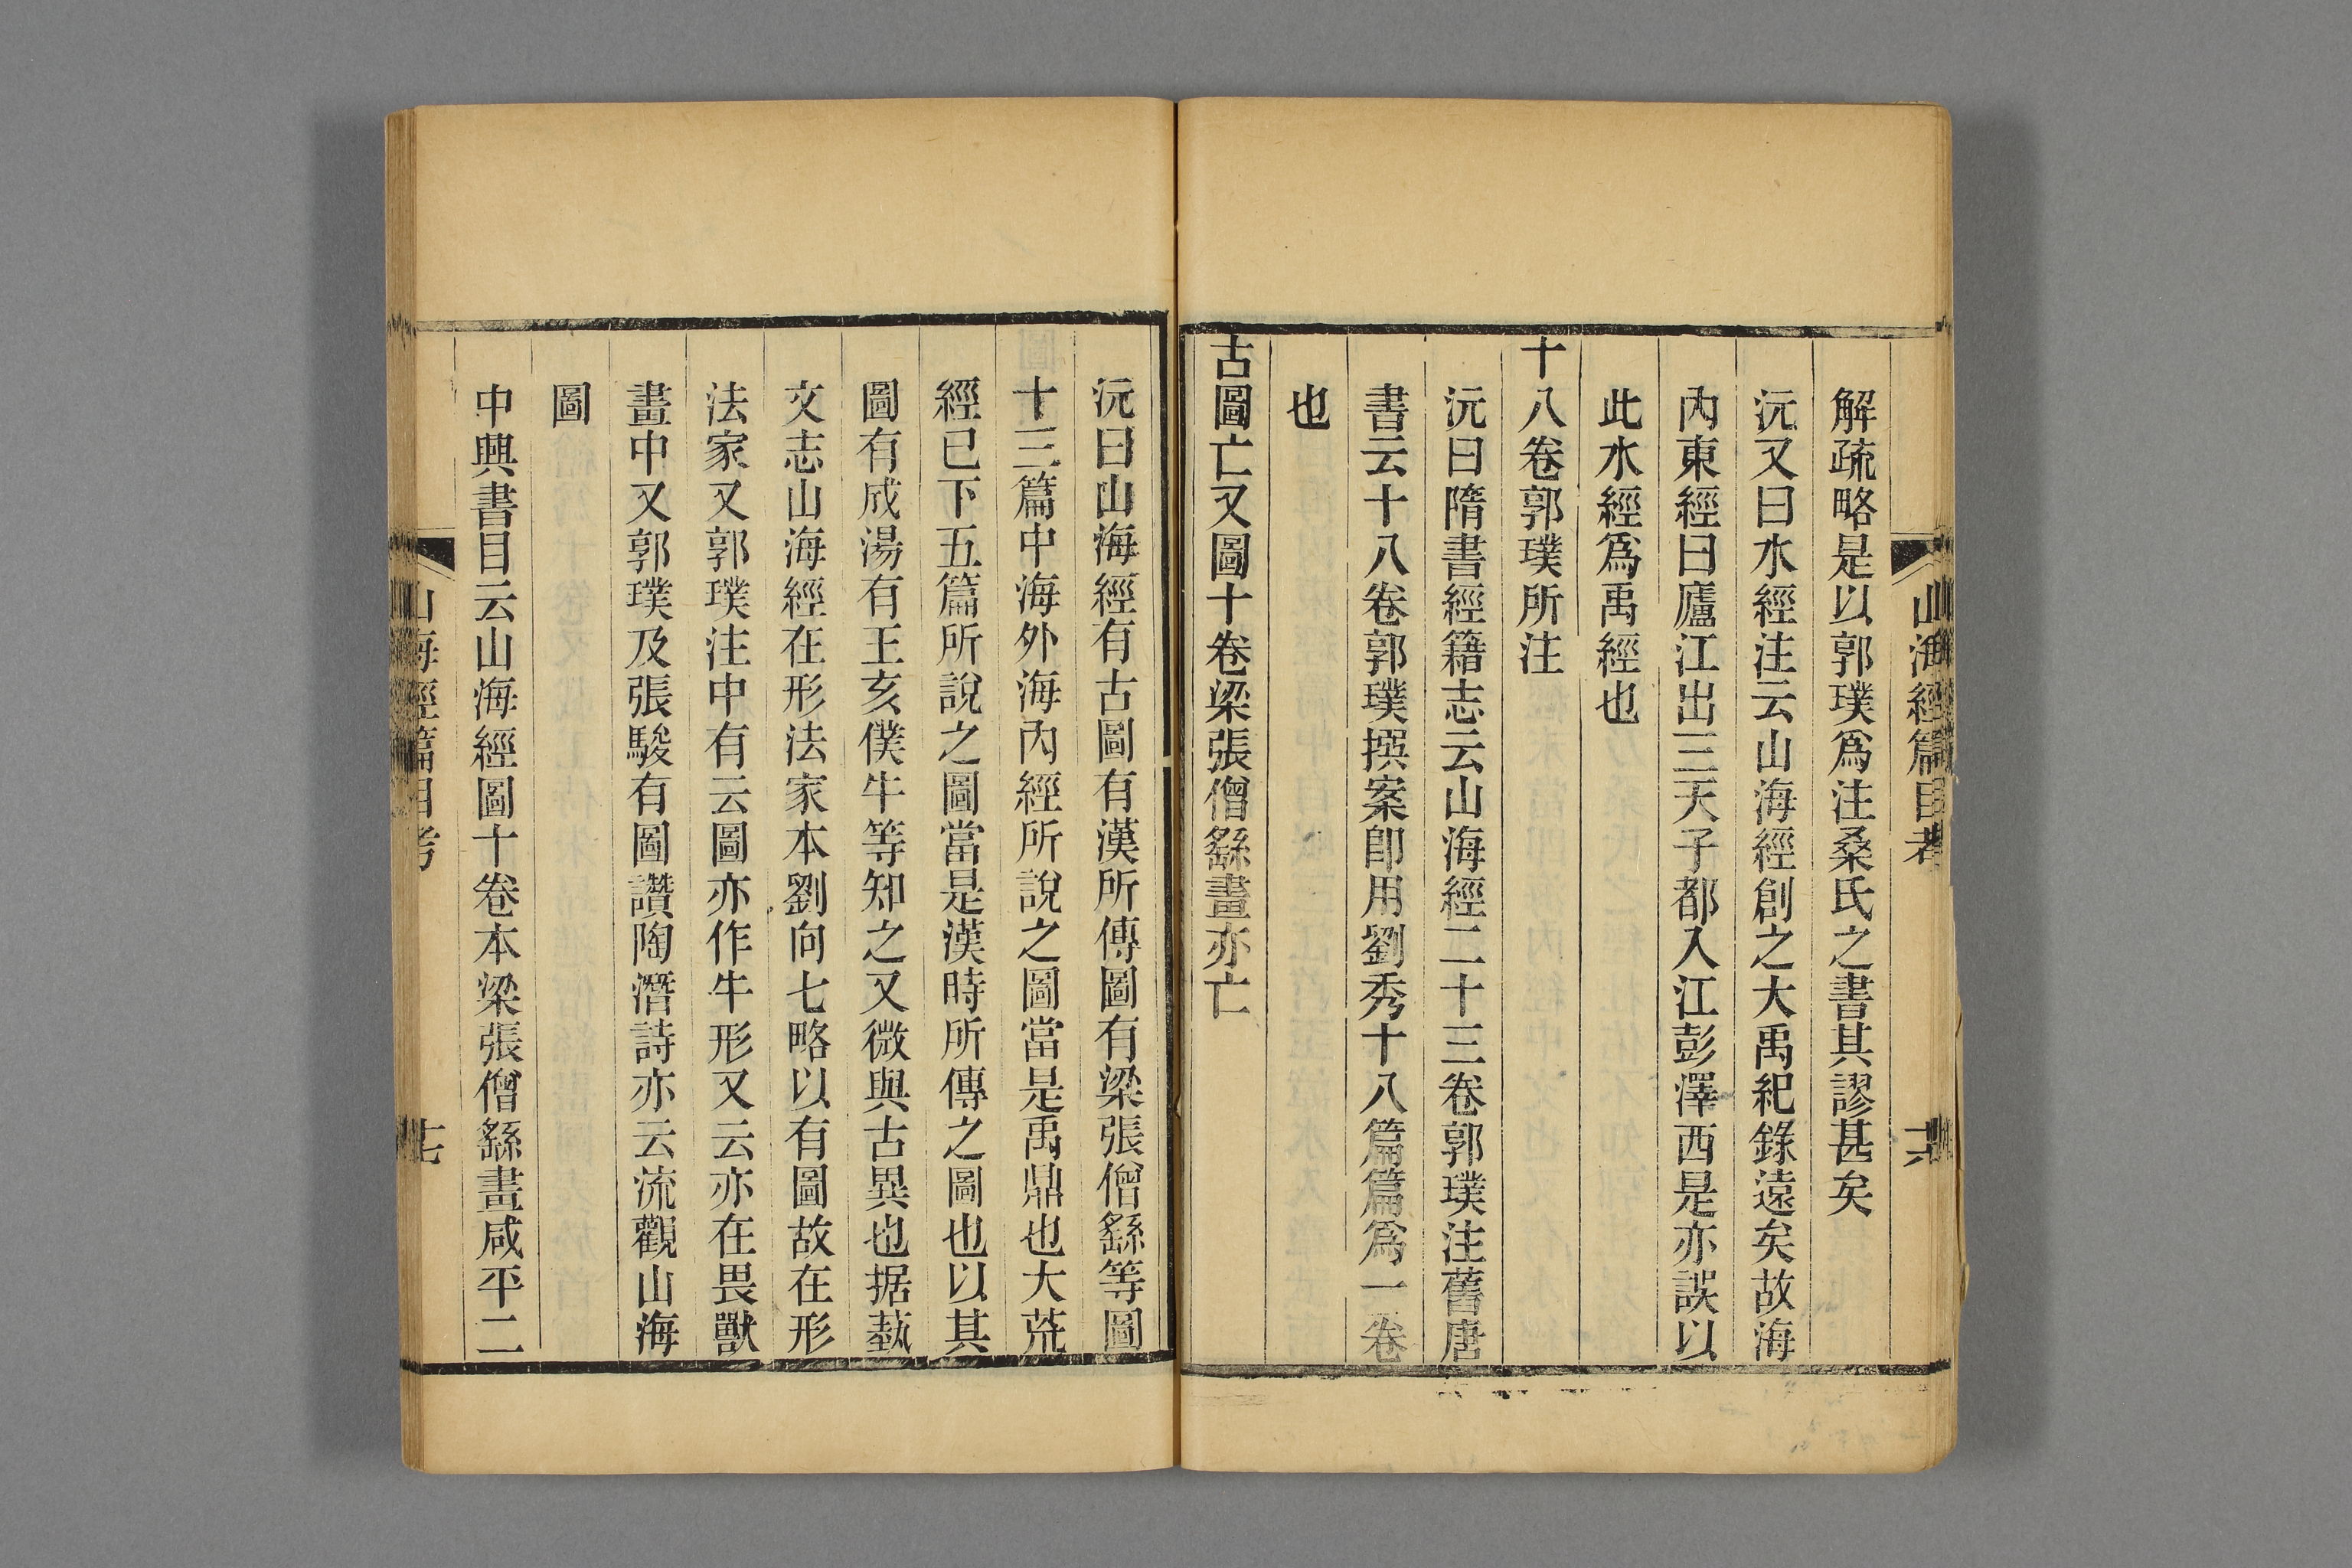 山海經篇目考 十六
解疏略是以郭璞爲注桑氏之書其謬甚矣
沅又曰水經注云山海經創之大禹紀錄遠矣故海
內東經曰廬江出三天子都入江彭澤西是亦誤以
此水經爲禹經也
十八卷郭璞所注
沅曰隋書經籍志云山海經二十三卷郭璞注舊唐
書云十八卷郭璞撰案卽用劉秀十八篇篇爲一卷
也
古圖亡又圖十卷梁張僧繇畫亦亡
沅曰山海經有古圖有漢所傳圖有梁張僧繇等圖
十三篇中海外海內經所說之圖當是禹鼎也大荒
經已下五篇所說之圖當是漢時所傳之圖也以其
圖有成湯有王亥僕牛等知之又微與古異也据蓺
文志山海經在形法家本劉向七略以有圖故在形
法家又郭璞注中有云圖亦作牛形又云亦在畏獸
畫中又郭璞及張駿有圖讚陶潛詩亦云流觀山海
圖
中興書目云山海經圖十卷本梁張僧繇畫咸平二
山海經篇目考 十七